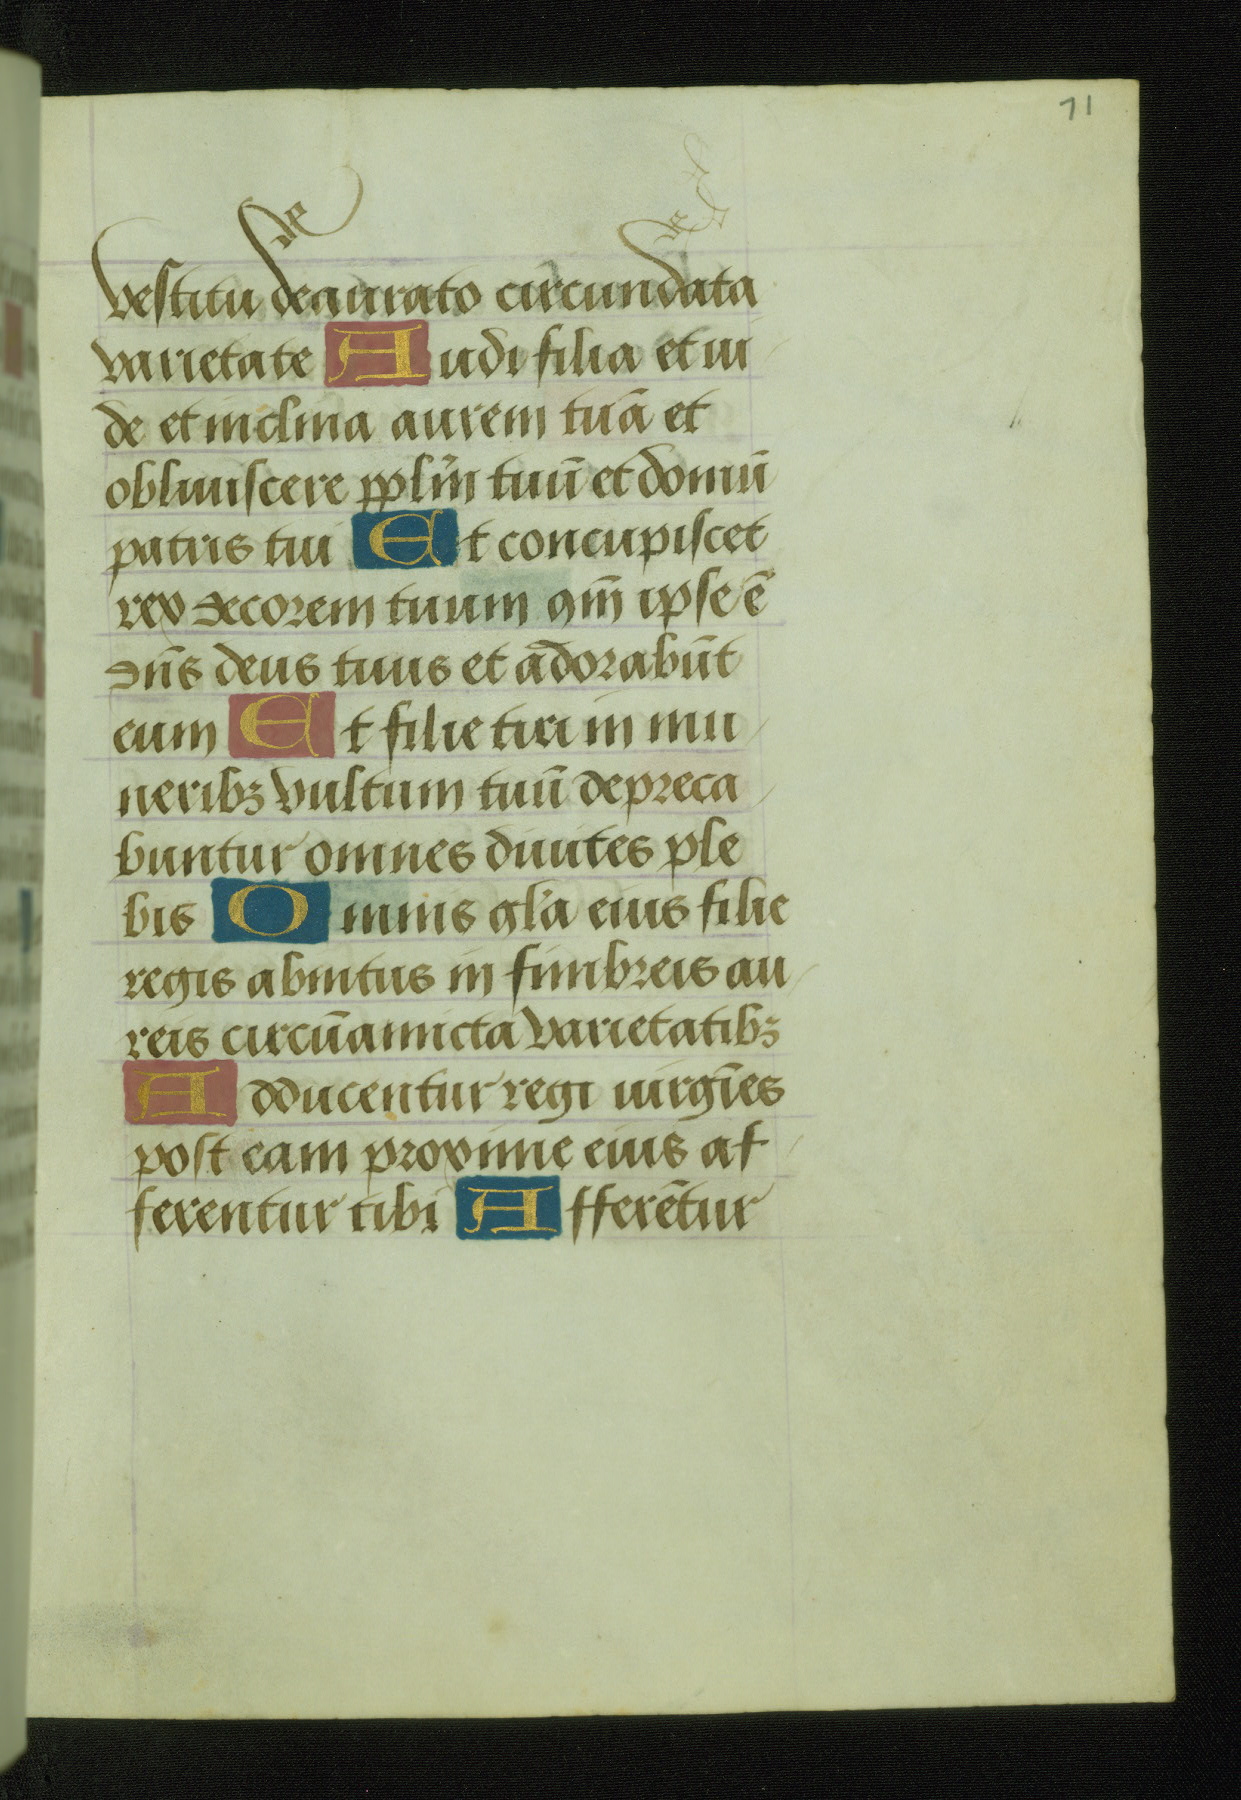 71
vestitu deaurato circundata
varietate Audi filia et ui
de et inclina aurem tuã et
obliuiscere pplm̃ tuũ et domũ
patris tui Et concupiscet
rex decorem tuum qm̃ ipse ẽ
dñs deus tuus et adorabũt
eum Et filie tiri in mu
neribꝫ vultum tuũ depreca
buntur omnes diuites ple
bis Omnis gl̃a eius filie
regis abintus in fimbreis au
reis circũamicta varietatibꝫ
Adducentur regi uirgĩes
post eam proxime eius af
ferentur tibi Afferẽtur